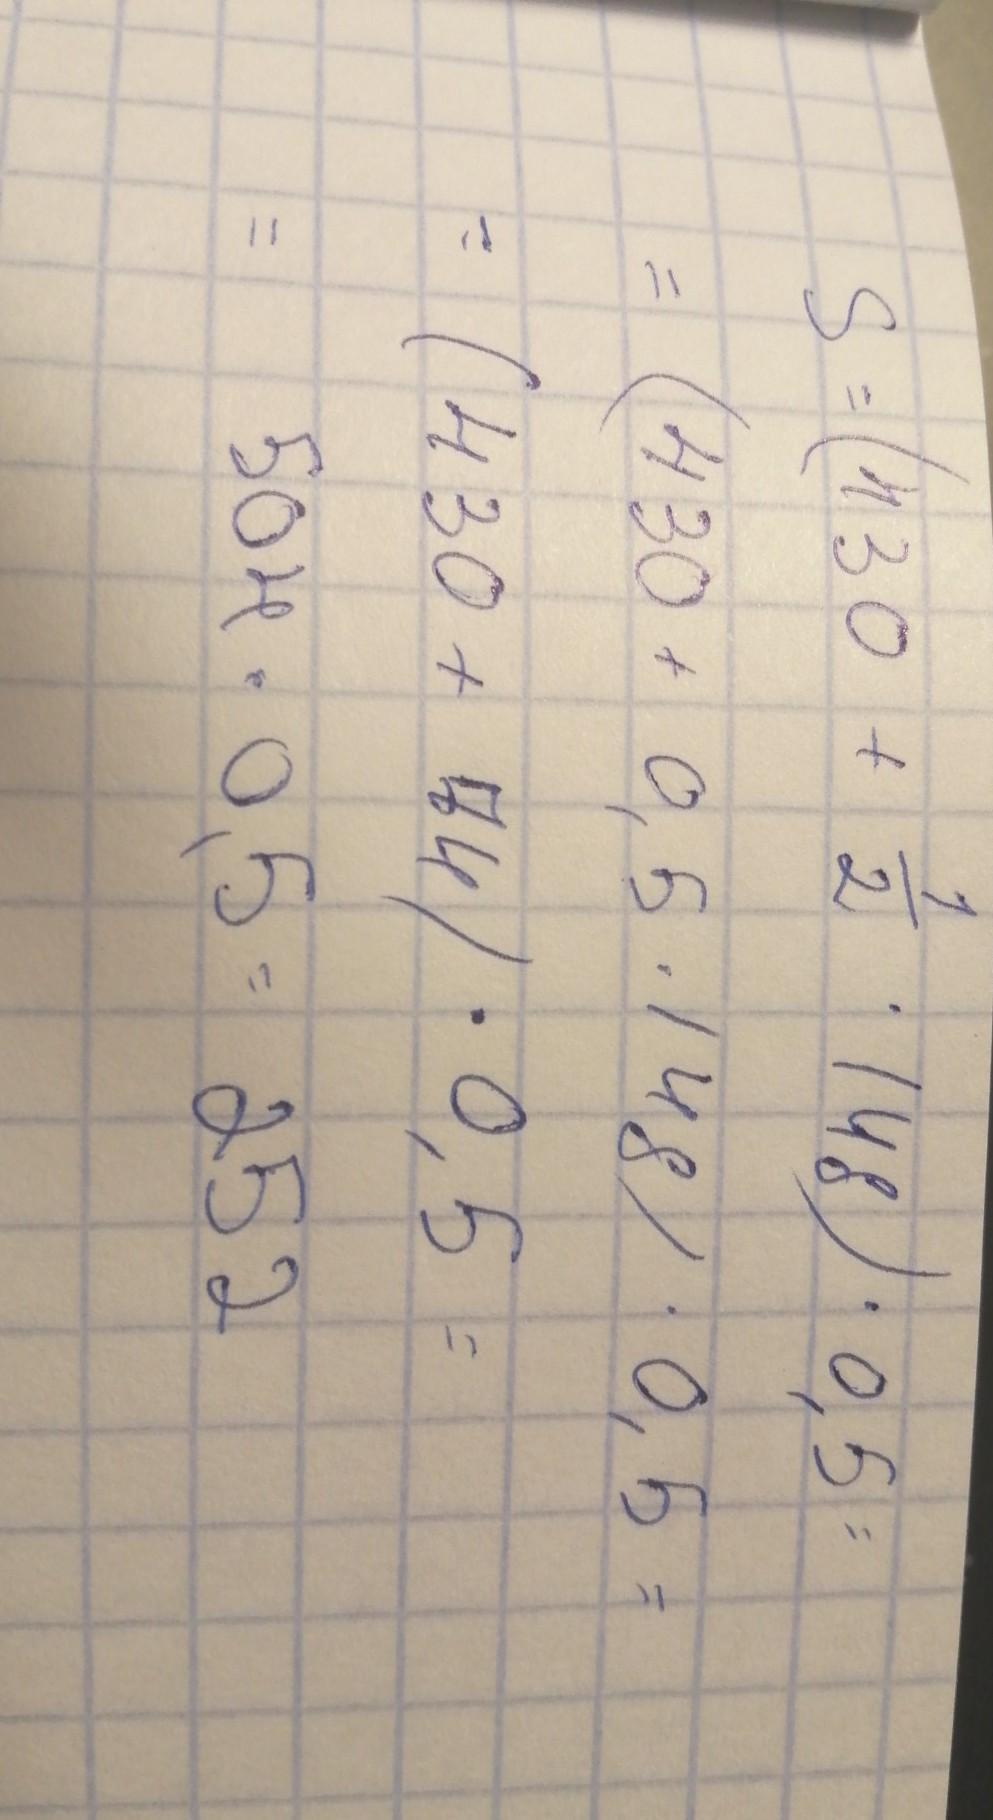 S = (430 + 1/2 · 148) · 0,5 =
= (430 + 0,5 · 148) · 0,5 =
= (430 + 74) · 0,5 =
= 504 · 0,5 = 252